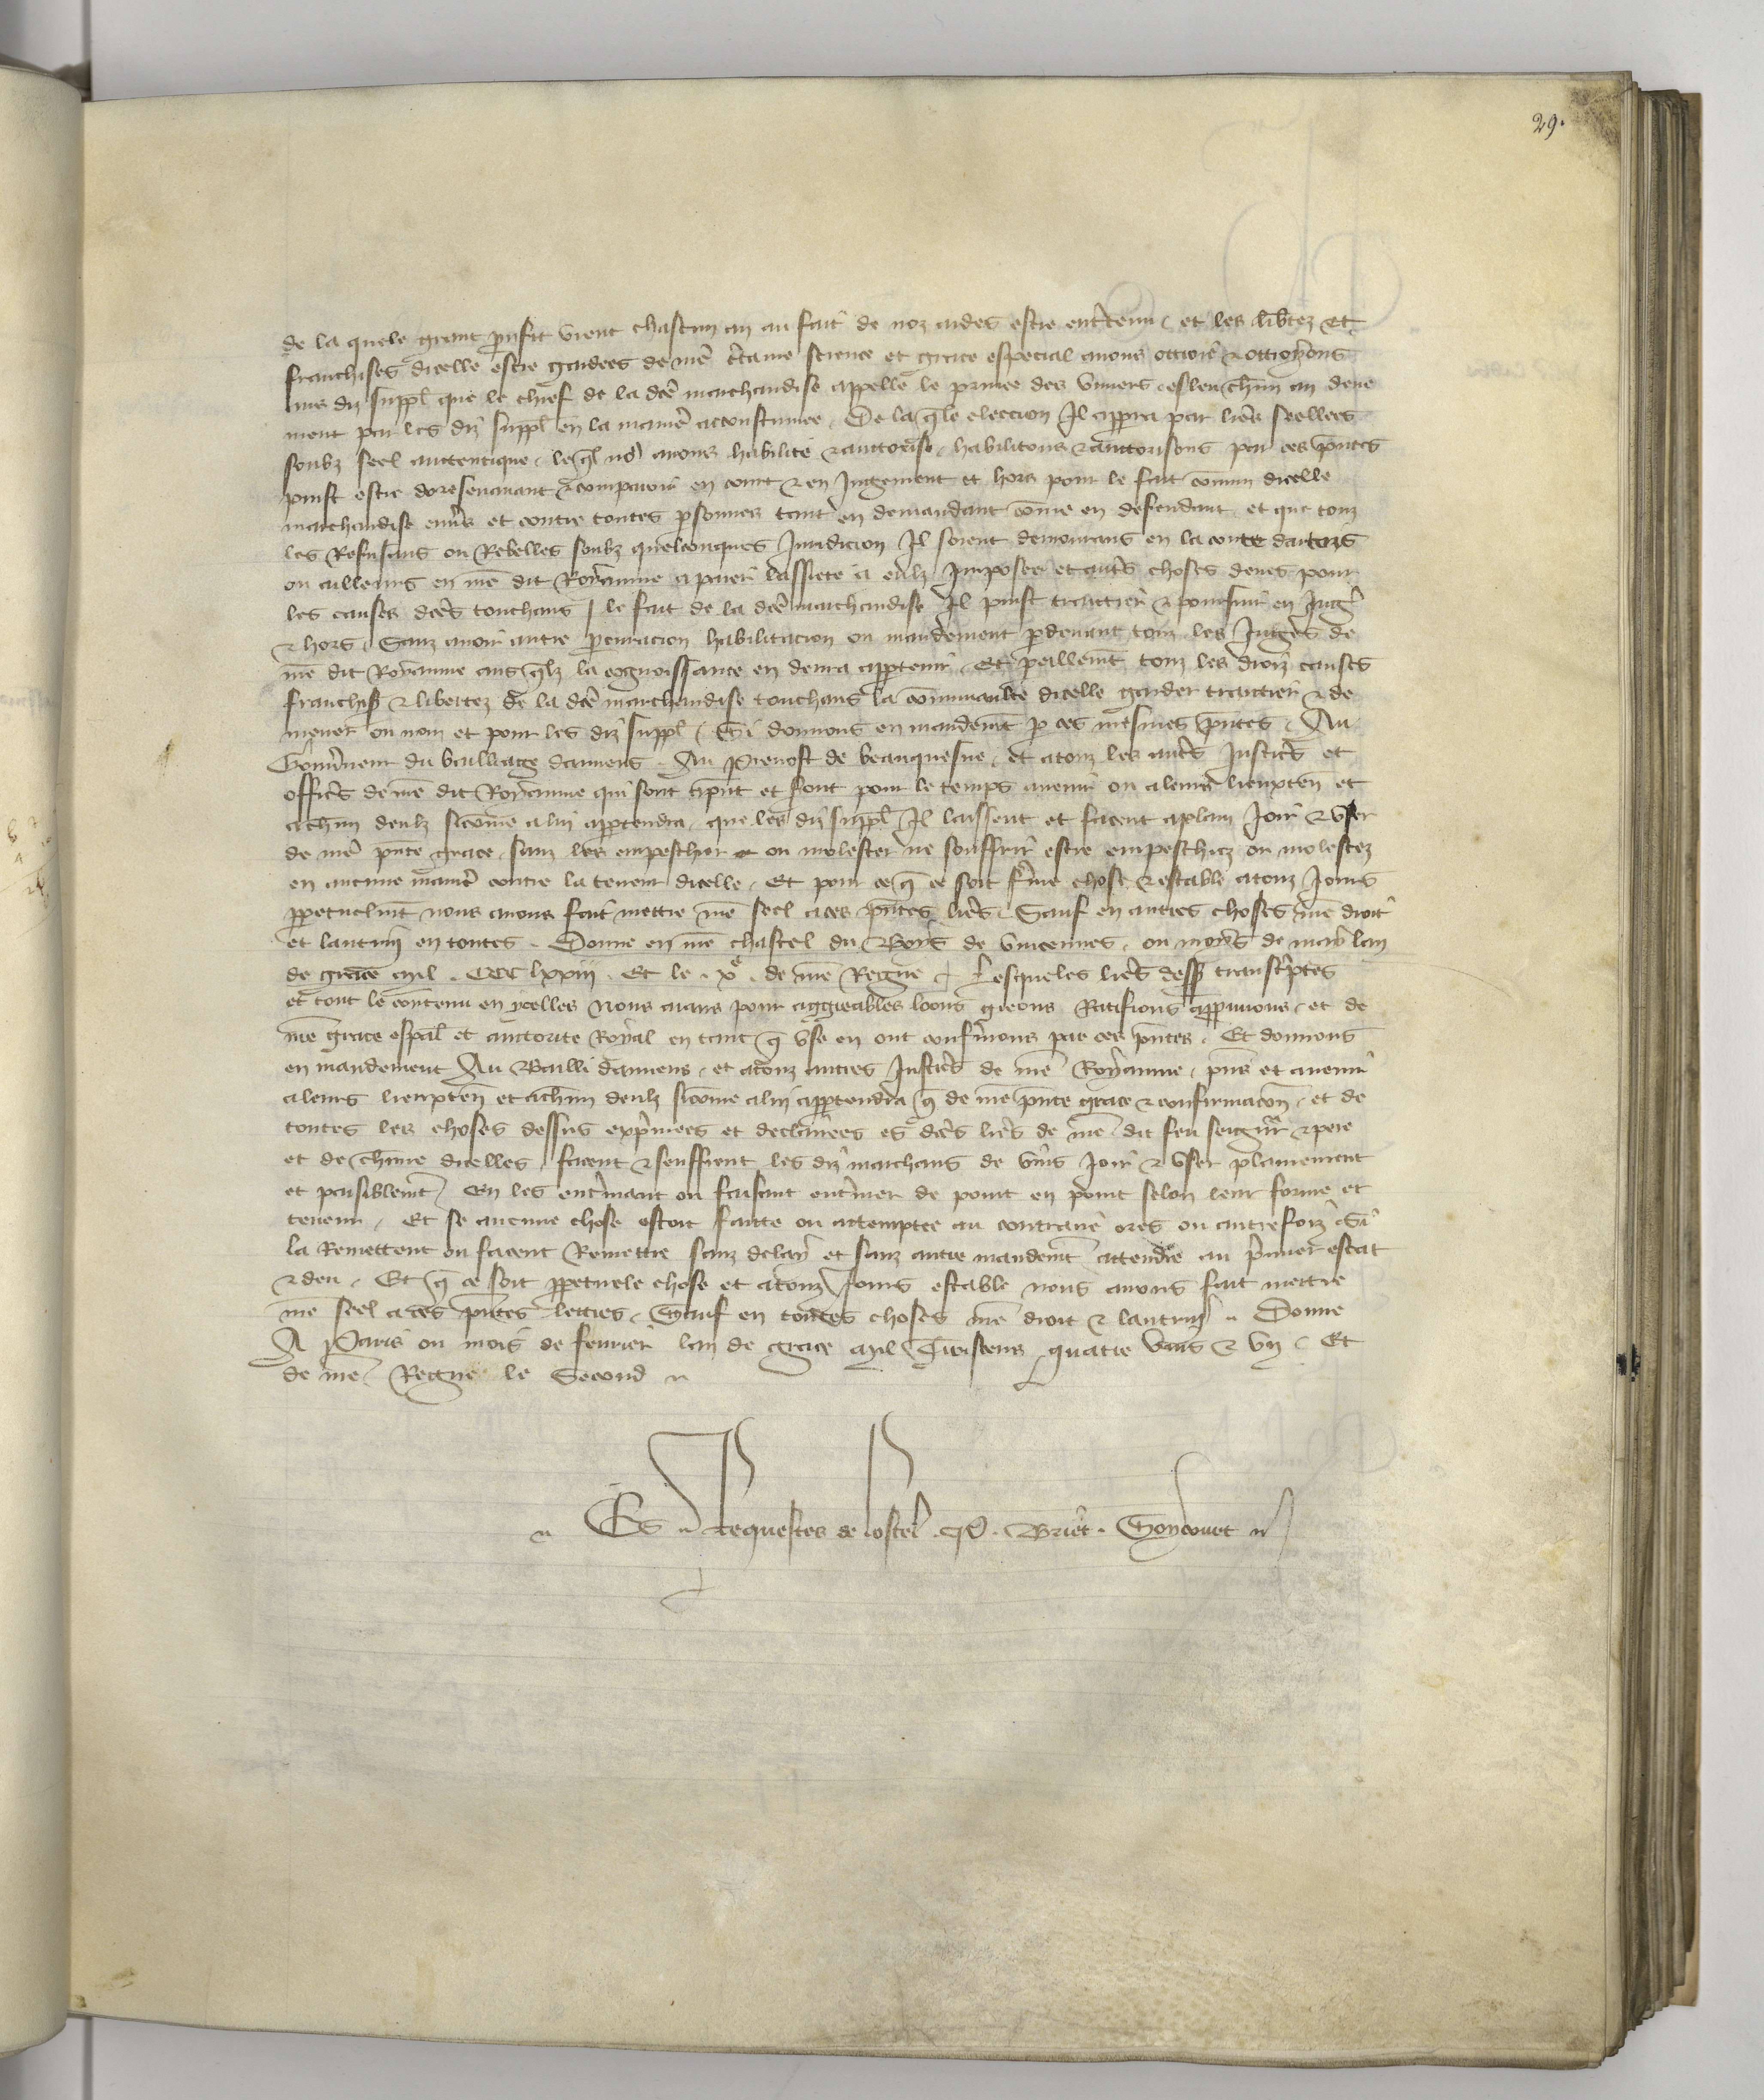 29.
de la quele grant proufit vient chascun an au fait de noz aides estre entretenu, et les libtez et
franchises dicelle estre gardees de nre certaine science et grace especial avons ottroié & ottroyons
aus diz suppl que le chief de la dce marchandise appelle le prince des vivers, esleu chun an deue
ment par les diz suppl en la maniere acoustumee, De la qle eleccion Il apprra par lres seellees
soubz seel auttentique, leql no9 avons habilite & auttorise, habilitons & auttorisons par ces pntes
puist estre doresenavant & comparoir en court & en Jugement et hors pour le fait comun dicelle
marchandise envers et contre toutes psonnes tant en demandant come en defendant, et que touz
les Refusans ou Rebelles soubz quelconques Juridicion Il soient demourans en la conte dartois
ou ailleurs en nre dit Royaume a paier lassiete a eulz Imposee et autres choses deues pour
les causes dces touchans le fait de la dce marchandise Il puist traittier & poursuir en Jugt
& hors, Sanz avoir autre pcuracion habilitacion ou mandement pdevant touz les Juges de
nre dit Royaume aus qlz la cognoissance en devra appartenir, Et peillemt touz les droiz causes
franchises & libertez de la dce marchandise touchans la communaulte dicelle garder traittier & de
mener ou nom et pour les diz suppl, Si donnons en mandemt p ces mesmes pntes, Au
Gouverneur du bailliage damiens, Au Prevost de beauquesne, et a touz les autres Justiciers et
officiers de nre dit Royaume qui sont apnt et sont pour le temps avenir ou a leurs lieuxten et
a chun deulz sicome a lui apptendra, que les diz suppl Il laissent et facent aplain Joir & user
de nre pnte grace, sanz les empeschier ou molester ne souffrir estre empeschiez ou molestez
en aucune maniere contre la teneur dicelle, Et pour ce q ce soit ferme chose & estable a touz Jours
ppetuelmt nous avons fait mettre nre seel a ces pntes lres, Sauf en autres choses nre droit
et lautruy en toutes. Donne en nre chastel du Boys de vincennes, ou moys de may lan
de grace mil. CCC lxxiii. Et le. xe. de nre Regne Lesqueles lres dessus transcriptes
et tout le contenu en ycelles Nous aians pour aggreables loons greons Ratifions appvuons, et de
nre grace espal et auctorite Royal en tant q use en ont confermons par ces pntes. Et donnons
en mandement Au Bailli damiens, et a touz autres Justiciers de nre Royaume, pns et avenir
a leurs lieuxten et a chun deulz sicome a lui apptendra q de nre pnte grace & confirmacon, et de
toutes les choses dessus exprimees et declairees es dces lres de nre dit feu seigneur & pere
et de chune dicelles, facent & seuffrent les diz marchans de vivres Joir & user plainement
et paisiblemt, En les entrinant ou faisant entriner de point en point selon leur forme et
teneur, Et se aucune chose estoit faitte ou attemptee au contraire ores ou autrefoiz Si
la Remettent ou facent Remettre sanz delay et sanz autre mandemt attendre au premier estat
& deu, Et q ce soit ppetuele chose et a touz Jours estable nous avons fait mettre
nre seel a ces pntes lettres, Sauf en toutes choses nre droit & lautruy. Donne
A Paris ou mois de fevrier lan de grace mil Troiscens quatre vins & un, Et
de nre Regne le Second
Es Requestes de lostel. P. Briet.